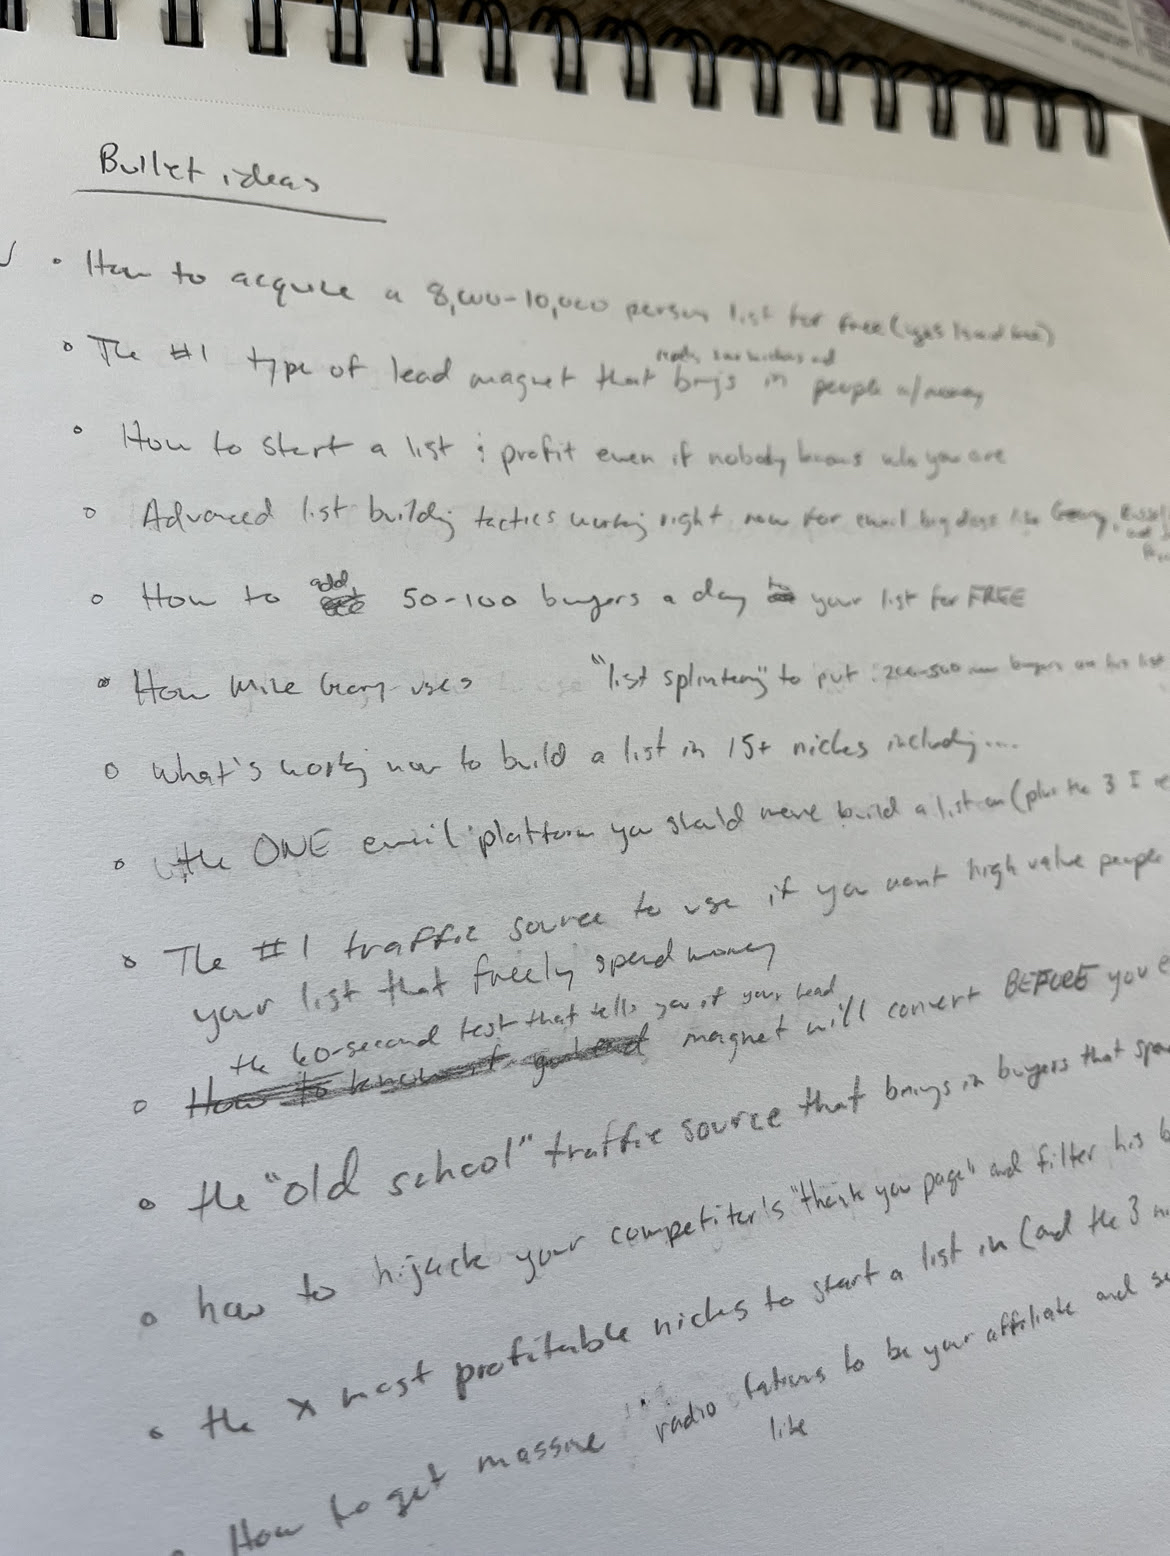 Bullet ideas
How to acquire a 8,000-10,000 person list for free
The #1 type of lead magnet that brings in people w/money
How to start a list & profit even if nobody knows who you are
Advanced list building tactics working right now for email big dogs like
add
How to 50-100 buyers a day to your list for FREE
How Mike Geary uses "list splintering" to put 200-500 new buyers on his list
What's working now to build a list in 15+ niches including....
the ONE email platform you should never build a list on (plus the 3 I
The #1 traffic source to use if you want high value people
your list that freely spend money
the 60-second test that tells you if your lead
How to know if magnet will convert BEFORE you
the "old school" traffic source that brings in buyers that
how to hijack your competitor's "thank you page" and filter his
the x most profitable niches to start a list in (and the 3
How to get massive radio stations to be your affiliate and
like